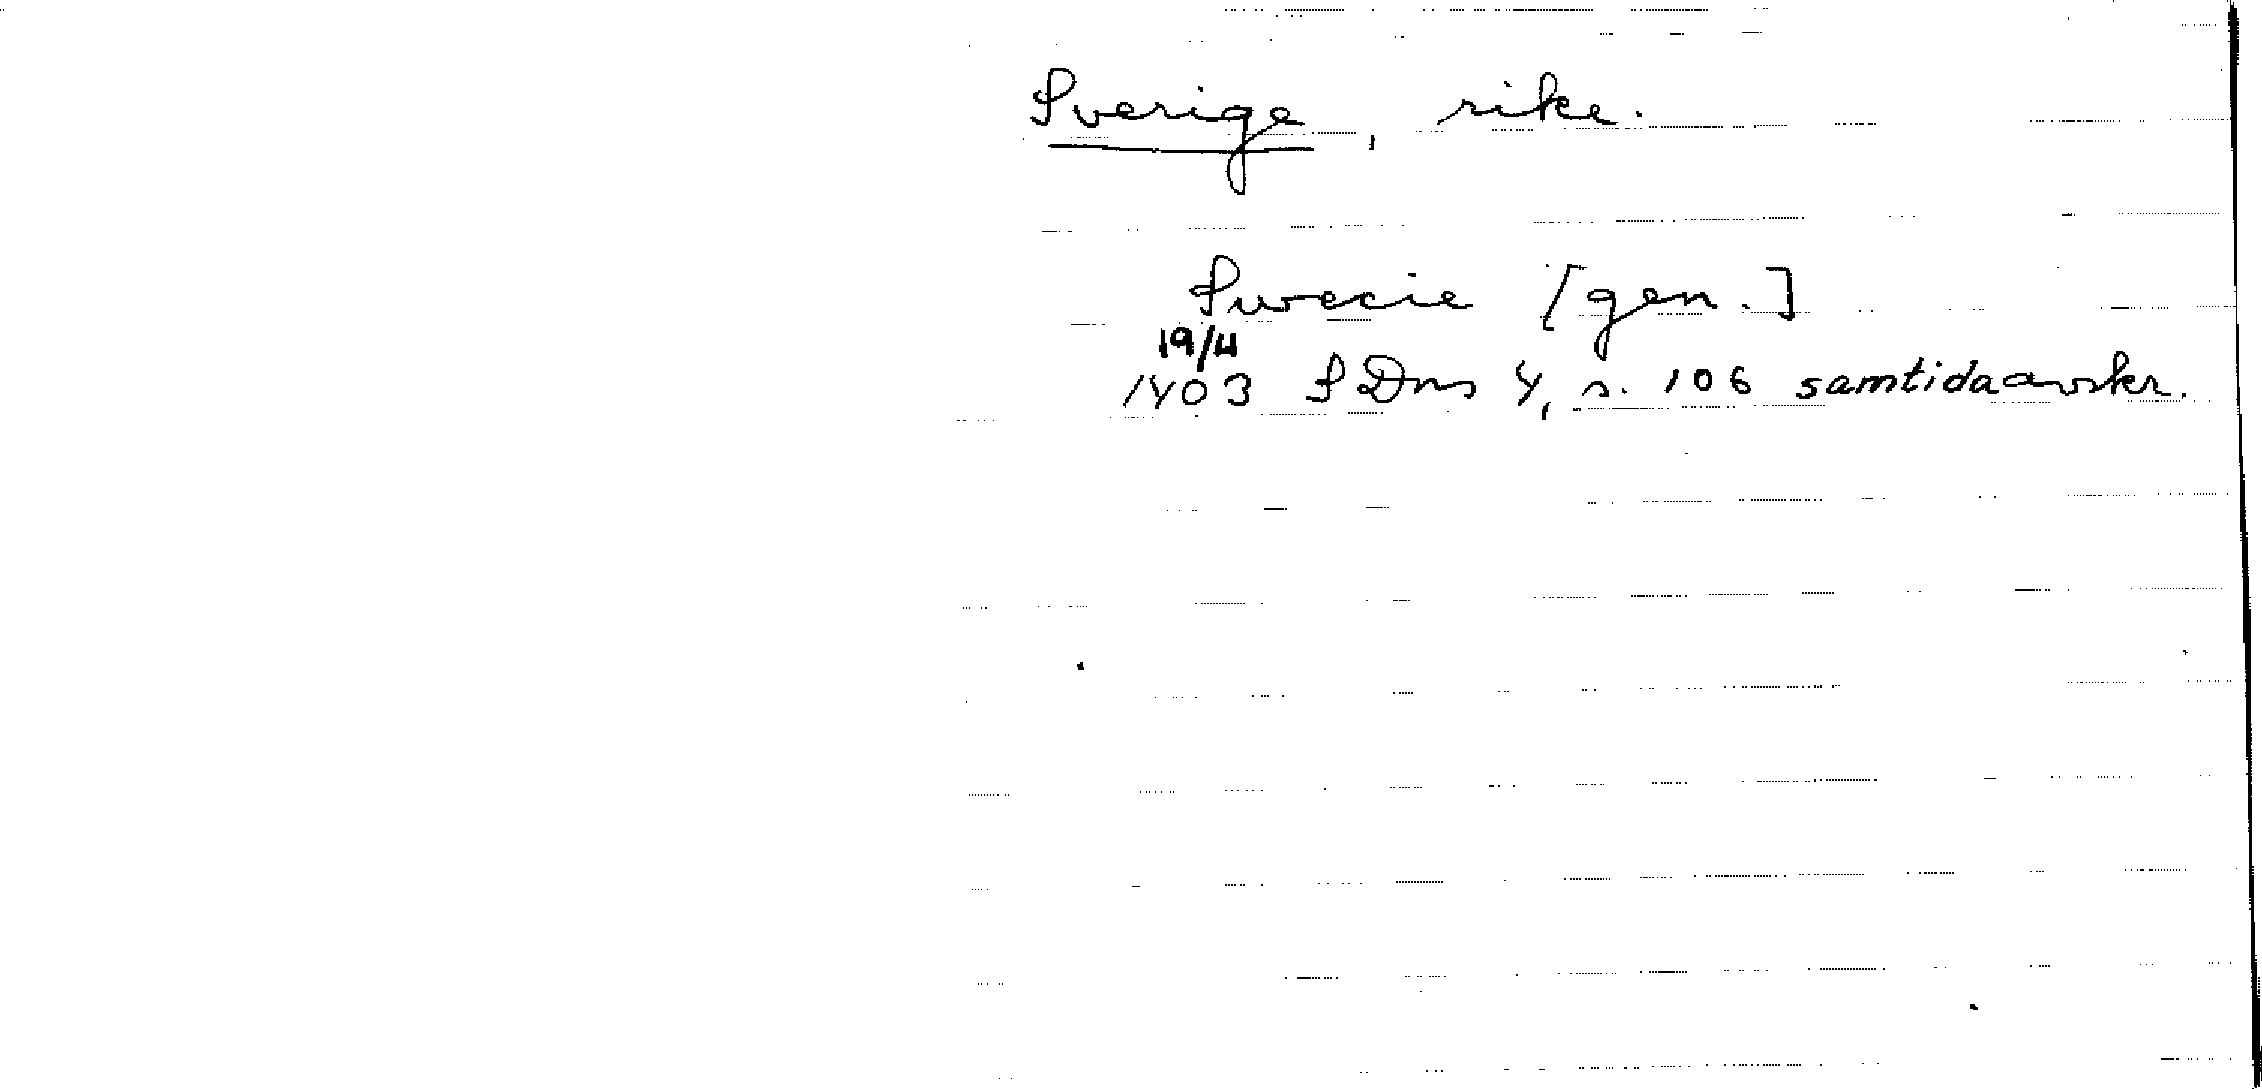 Sverige, rike.
Swecie [gen.]
19/4
1403 SDns 4, s. 106 samtida avskr.